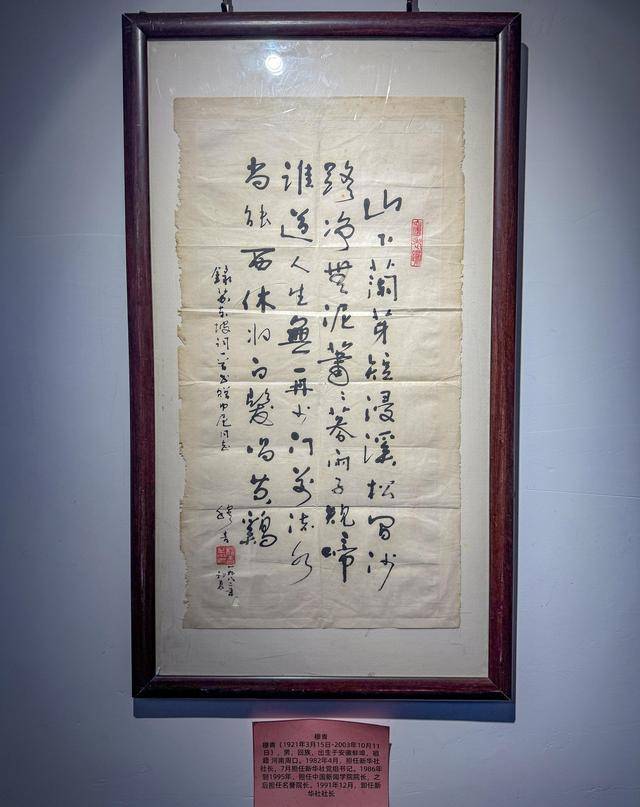 山下蘭芽短浸溪松間沙
路净無泥蕭蕭暮雨子規啼
誰道人生無再少门前流水
尚能西休将白髮唱黄鷄
錄苏东坡词一首书赠同志
穆青
一九八二年
穆青
穆青（1921年3月15日-2003年10月11
日），男，回族，出生于安徽蚌埠，祖
籍 河南周口。1982年4月，担任新华社
社长，7月担任新华社党组书记。1986年
到1995年，担任中国新闻学院院长，之
后担任名誉院长。1991年12月，卸任新
华社社长